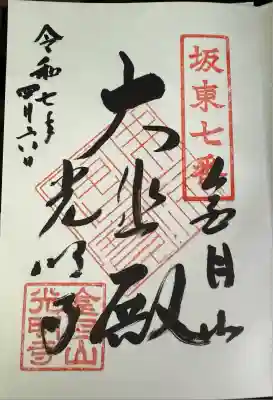 坂東七番
金目山
大悲殿
光明寺
令和七年
四月
金目山
光明寺